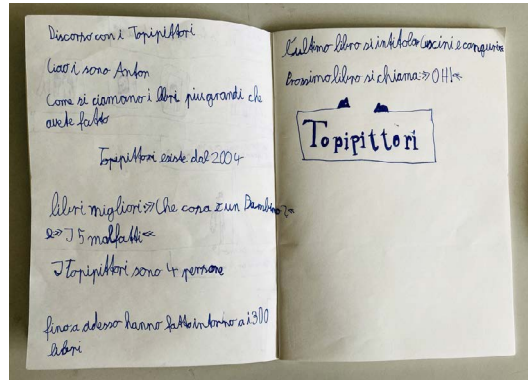 Discorso con i Topipittori
Ciao i sono Anton
Come si ciamano i libri piu grandi che
avete fatto
Topipittori esiste dal 2004
libri migliori: »Che cosa è un Bambino?«
e »I 5 malfatti«
I Topipittori sono 4 persone
fino a adesso hanno fatto intorno a i 300
libri
L'ultimo libro si intitola Cuscini e canguri
Prossimo libro si chiama: »OH!«
Topipittori